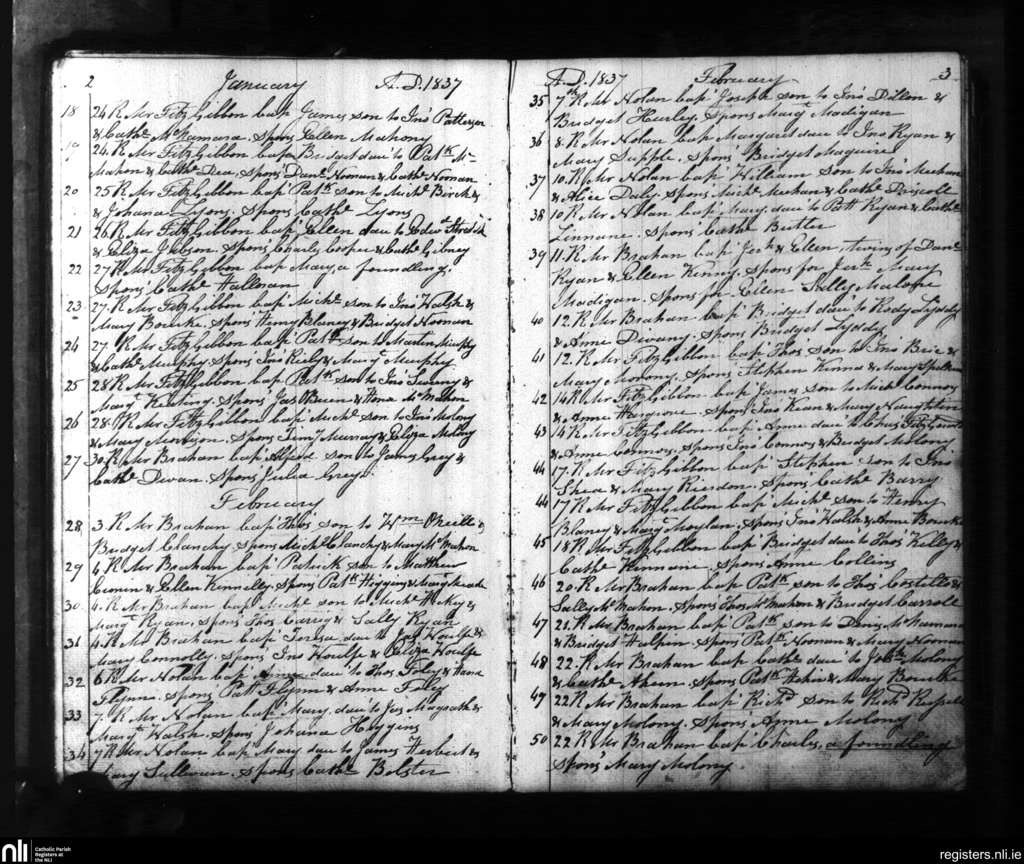 2 January A.D. 1837
18 24 R. Mr FitzGibbon bap James son to Jno Patterson
& Cathe McNamara. Spons Ellen Mahony
19 24. R Mr FitzGibbon bap Bridget daur to Patk Mc
Mahon & Cathe Dea. Spons Danl Noonan & Cathe Noonan
20 25 R Mr FitzGibbon bap Patk son to Michl
& Johana Lyons. Spons Cathe Lyons
21 26. R Mr FitzGibbon bap Ellen daur to Edwd
& Eliza Spons Charly Cooper & Cathe Gibney
22 27 R. Mr FitzGibbon bap Mary a foundling.
Spons Cathe Hallinan
23 27. R Mr FitzGibbon bap Michl son to Jno Walsh &
Mary Bourke. Spons Henry Blaney & Bridget Noonan
24 27. R Mr FitzGibbon bap Patk son to Martin Murphy
& Cathe Murphy. Spons Jno Riely & Margt Murphy
25 28 R Mr FitzGibbon bap Patk son to Jno &
Margt Keating. Spons Jas OBrien & Hana McMahon
26 28. R Mr FitzGibbon bap Michl son to Jno Molony
& Mary Morrison. Spons Timy Murray & Eliza Molony
27 30. R Mr Brahan bap Alfred son to James Grey &
Cathe Divan. Spons Julia Grey.
February
28 3. R Mr Brahan bap Thos son to Wm ONeill &
Bridget Clanchy. Spons Michl Clanchy & Mary McMahon
29 4. R Mr Brahan bap Patrick son to Matthew
Cronin & Ellen Kennelly. Spons Patk Higgins & Mary
30 4. R Mr Brahan bap Michl son to Michl Hickey &
Margt Ryan. Spons Thos Carrig & Sally Ryan
31 4. R Mr Brahan bap Teresa daur to Jas Houlpe &
Mary Connolly. Spons Jno Houlpe & Eliza Houlpe
32 6 R Mr Nolan bap Anne daur to Thos Foley & Hana
Flynn. Spons Patt Flynn & Anne Foley
33 7. R Mr Nolan bap Mary daur to Jas Magrath &
Mary Walsh. Spons Johana Higgins
34 7 R Mr Nolan bap Mary daur to James Herbert &
Mary Sullivan. Spons Cathe Bolster
A.D. 1837 February 3
35 7th R Mr Nolan bap Joseph son to Jno Dillon &
Bridget Hurley. Spons Margt Madigan
36 8. R Mr Nolan bap Margaret daur to Jno Ryan &
Mary Supple. Spons Bridget Maguire
37 10. R Mr Nolan bap William son to Jno Meehan
& Alice Daly. Spons Michl Meehan & Cathe Driscoll
38 10 R Mr Nolan bap Mary daur to Patt Ryan & Cathe
Linnane. Spons Cathe Butler
39 11. R Mr Brahan bap Jerh & Ellen, twins of Danl
Ryan & Ellen Kenny. Spons for Jerh Mary
Madigan. Spons for Ellen Sally Malone
40 12. R Mr Brahan bap Bridget daur to Rody Lyddy
& Anne Diveny. Spons Bridget Lyddy
41 12. R Mr FitzGibbon bap Thos son to Jno Brie &
Mary Molony. Spons Stephen Kinna & Mary
42 14 R Mr FitzGibbon bap James son to Michl Connors
& Anne Hargrove. Spons Jas Kean & Mary Naughtin
43 14 R Mr FitzGibbon bap Anne daur to Chas FitzGerald
& Anne Connors. Spons Jno Connors & Bridget Molony
44 17. R Mr FitzGibbon bap Stephen son to Jno
Shea & Mary Riordon. Spons Cathe Barry
44 17 R Mr FitzGibbon bap Michl son to Henry
Blaney & Margt Moylan. Spons Jno Walsh & Anne Bourke
45 18 R Mr FitzGibbon bap Bridget daur to Thos Kelly &
Cathe Kennane. Spons Anne Collins
46 20. R Mr Brahan bap Patk son to Thos Costello &
Sally McMahon. Spons Thos McMahon & Bridget Carroll
47 21. R Mr Brahan bap Patk son to Denis McNamara
& Bridget Halpin. Spons Patk Noonan & Mary Noonan
48 22. R Mr Brahan bap Cathe daur to Molony
& Cathe Ahern. Spons Patk & Mary Bourke
49 22 R Mr Brahan bap Richd son to Richd Russell
& Mary Molony. Spons Anne Molony
50 22 R Mr Brahan bap Charles, a foundling
Spons Mary Molony.
nli Catholic Parish Registers at the NLI
registers.nli.ie